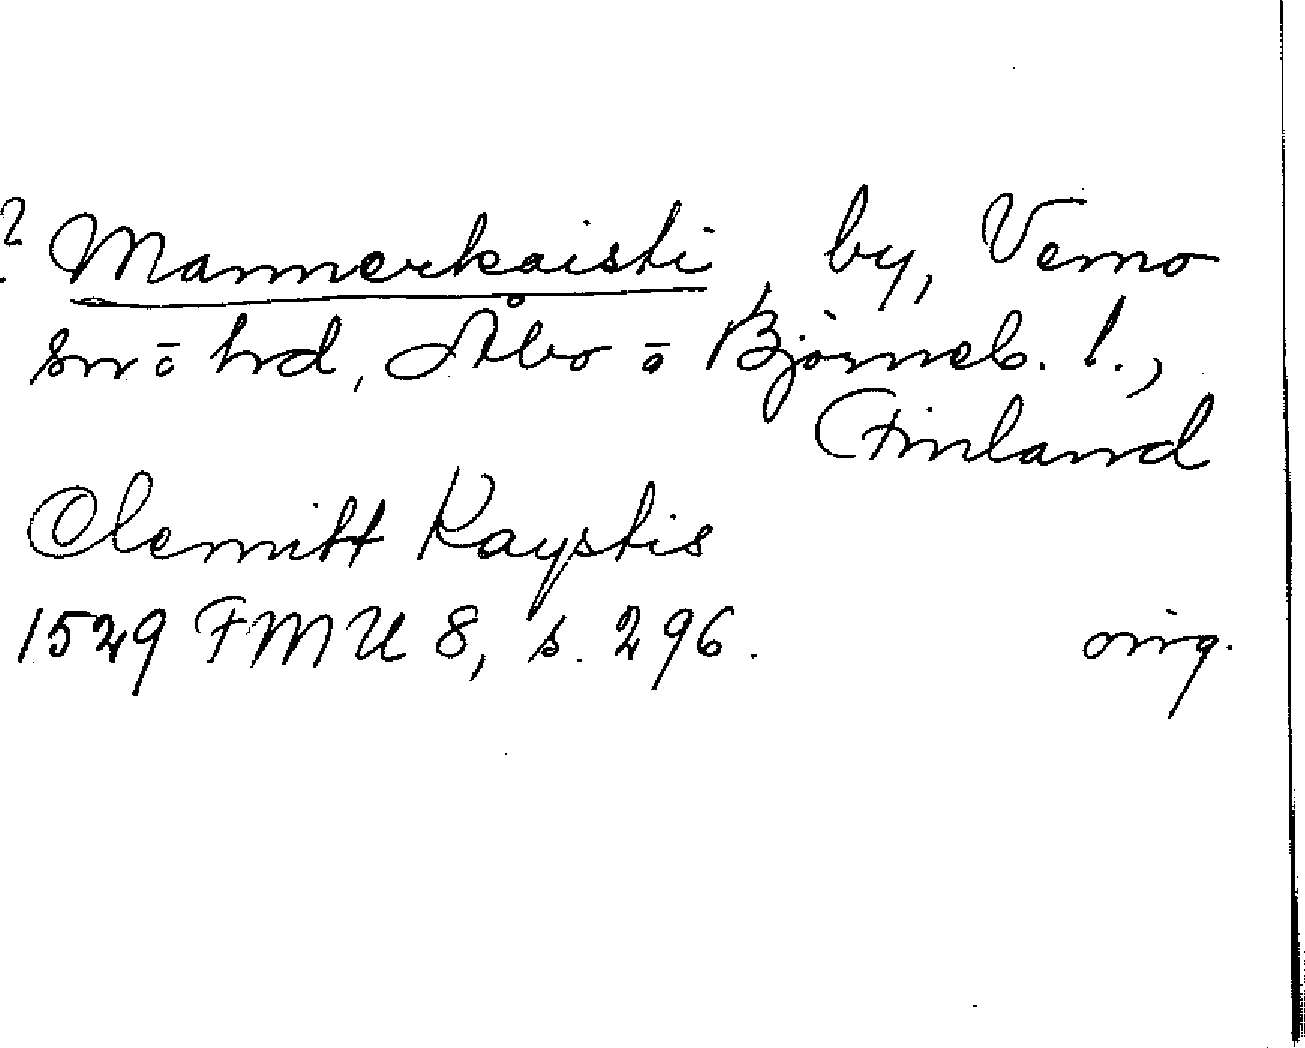 ? Mannerkaisti by, Vemo
sn o hd, Åbo o Björneb. l.,
Finland
Clemitt Kaystis
1529 FMU 8, s. 296. orig.